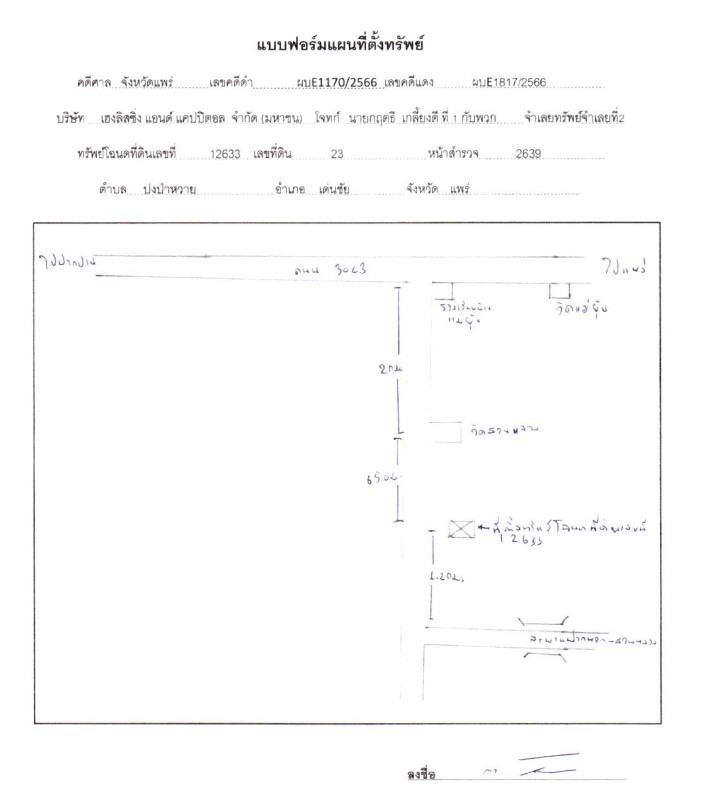 แบบฟอร์มแผนที่ตั้งทรัพย์
คดีศาล จังหวัดแพร่ เลขคดีดำ ผบE1170/2566 เลขคดีแดง ผบE1817/2566
บริษัท เฮงลิสซิ่ง แอนด์ แคปปิตอล จำกัด (มหาชน) โจทก์ นายกฤตธี เกลี้ยงดี ที่ 1 กับพวก จำเลยทรัพย์จำเลยที่2
ทรัพย์โฉนดที่ดินเลขที่ 12633 เลขที่ดิน 23 หน้าสำรวจ 2639
ตำบล ปงป่าหวาย อำเภอ เด่นชัย จังหวัด แพร่
ไปปากปาน ถนน 3023 ไปแพร่
โรงเรียนบ้าน วัดแม่ยุ้น
แม่ยุ้น
2 กม
วัดสวนหลวง
650ม.
ที่ตั้งทรัพย์โฉนดที่ดินเลขที่
12633
1.2กม.
สวนหลวง
ลงชื่อ